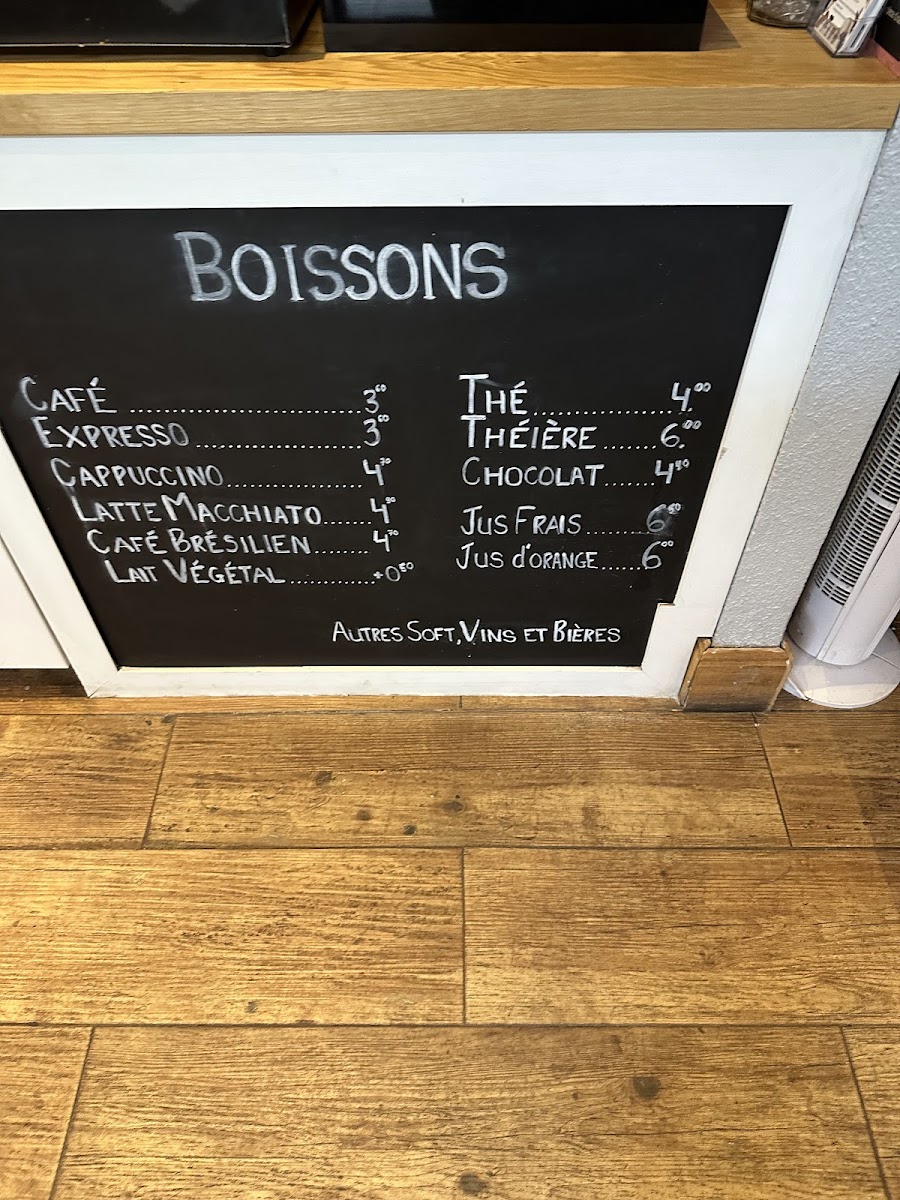 BOISSONS
CAFÉ ............................ 3.60
EXPRESSO ..................... 3.60
CAPPUCCINO ................ 4.70
LATTE MACCHIATO ...... 4.90
CAFÉ BRÉSILIEN ....... 4.70
LAIT VÉGÉTAL ........... +0.80
THÉ ................. 4.00
THÉIÈRE ....... 6.00
CHOCOLAT ...... 4.90
JUS FRAIS ........ 6.50
JUS d'ORANGE ..... 6.00
AUTRES SOFT, VINS ET BIÈRES